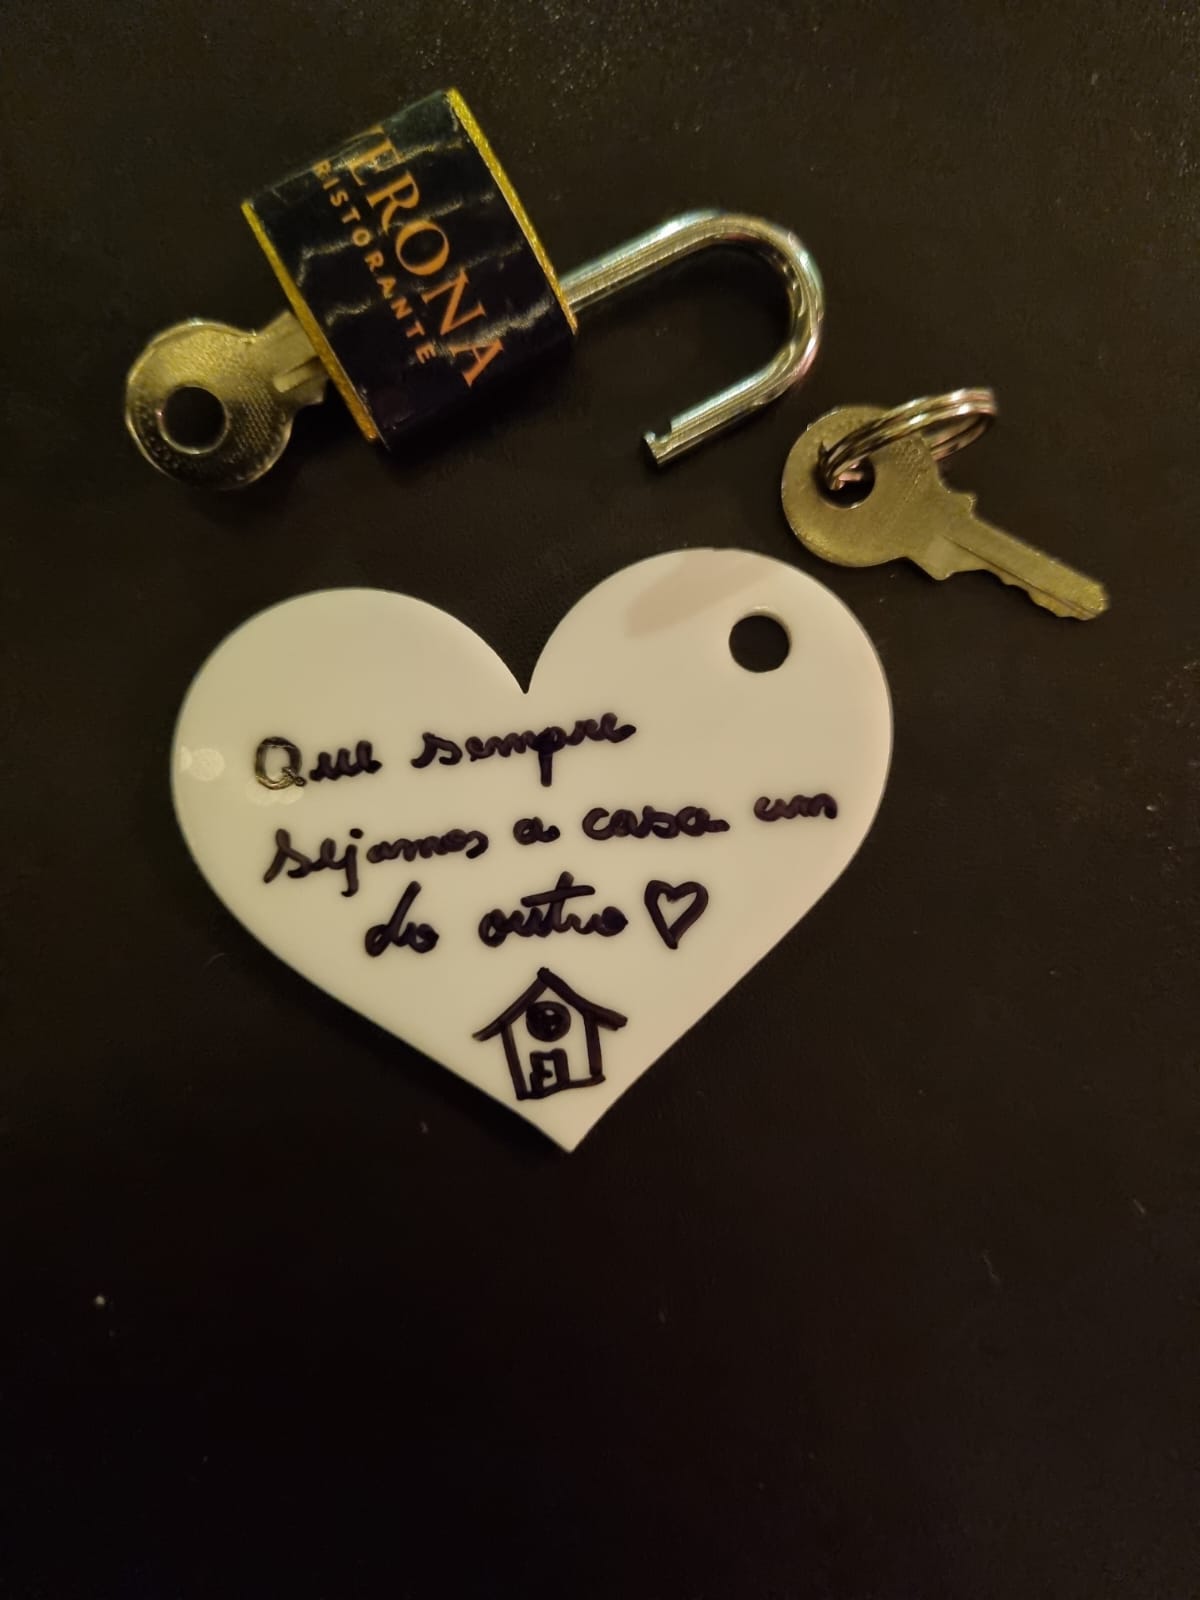 VERONA
RISTORANTE
Que sempre
sejamos a casa um
do outro ♡